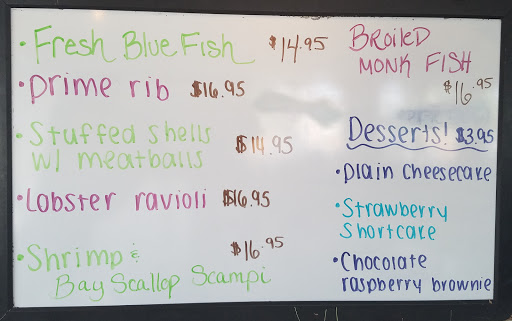 • Fresh Blue Fish $14.95
• Prime rib $16.95
• Stuffed Shells
w/ meatballs $14.95
• Lobster ravioli $16.95
• Shrimp & $16.95
Bay Scallop Scampi
Broiled
Monk Fish
$16.95
Desserts! $3.95
• Plain Cheesecake
• Strawberry
Shortcake
• Chocolate
raspberry brownie